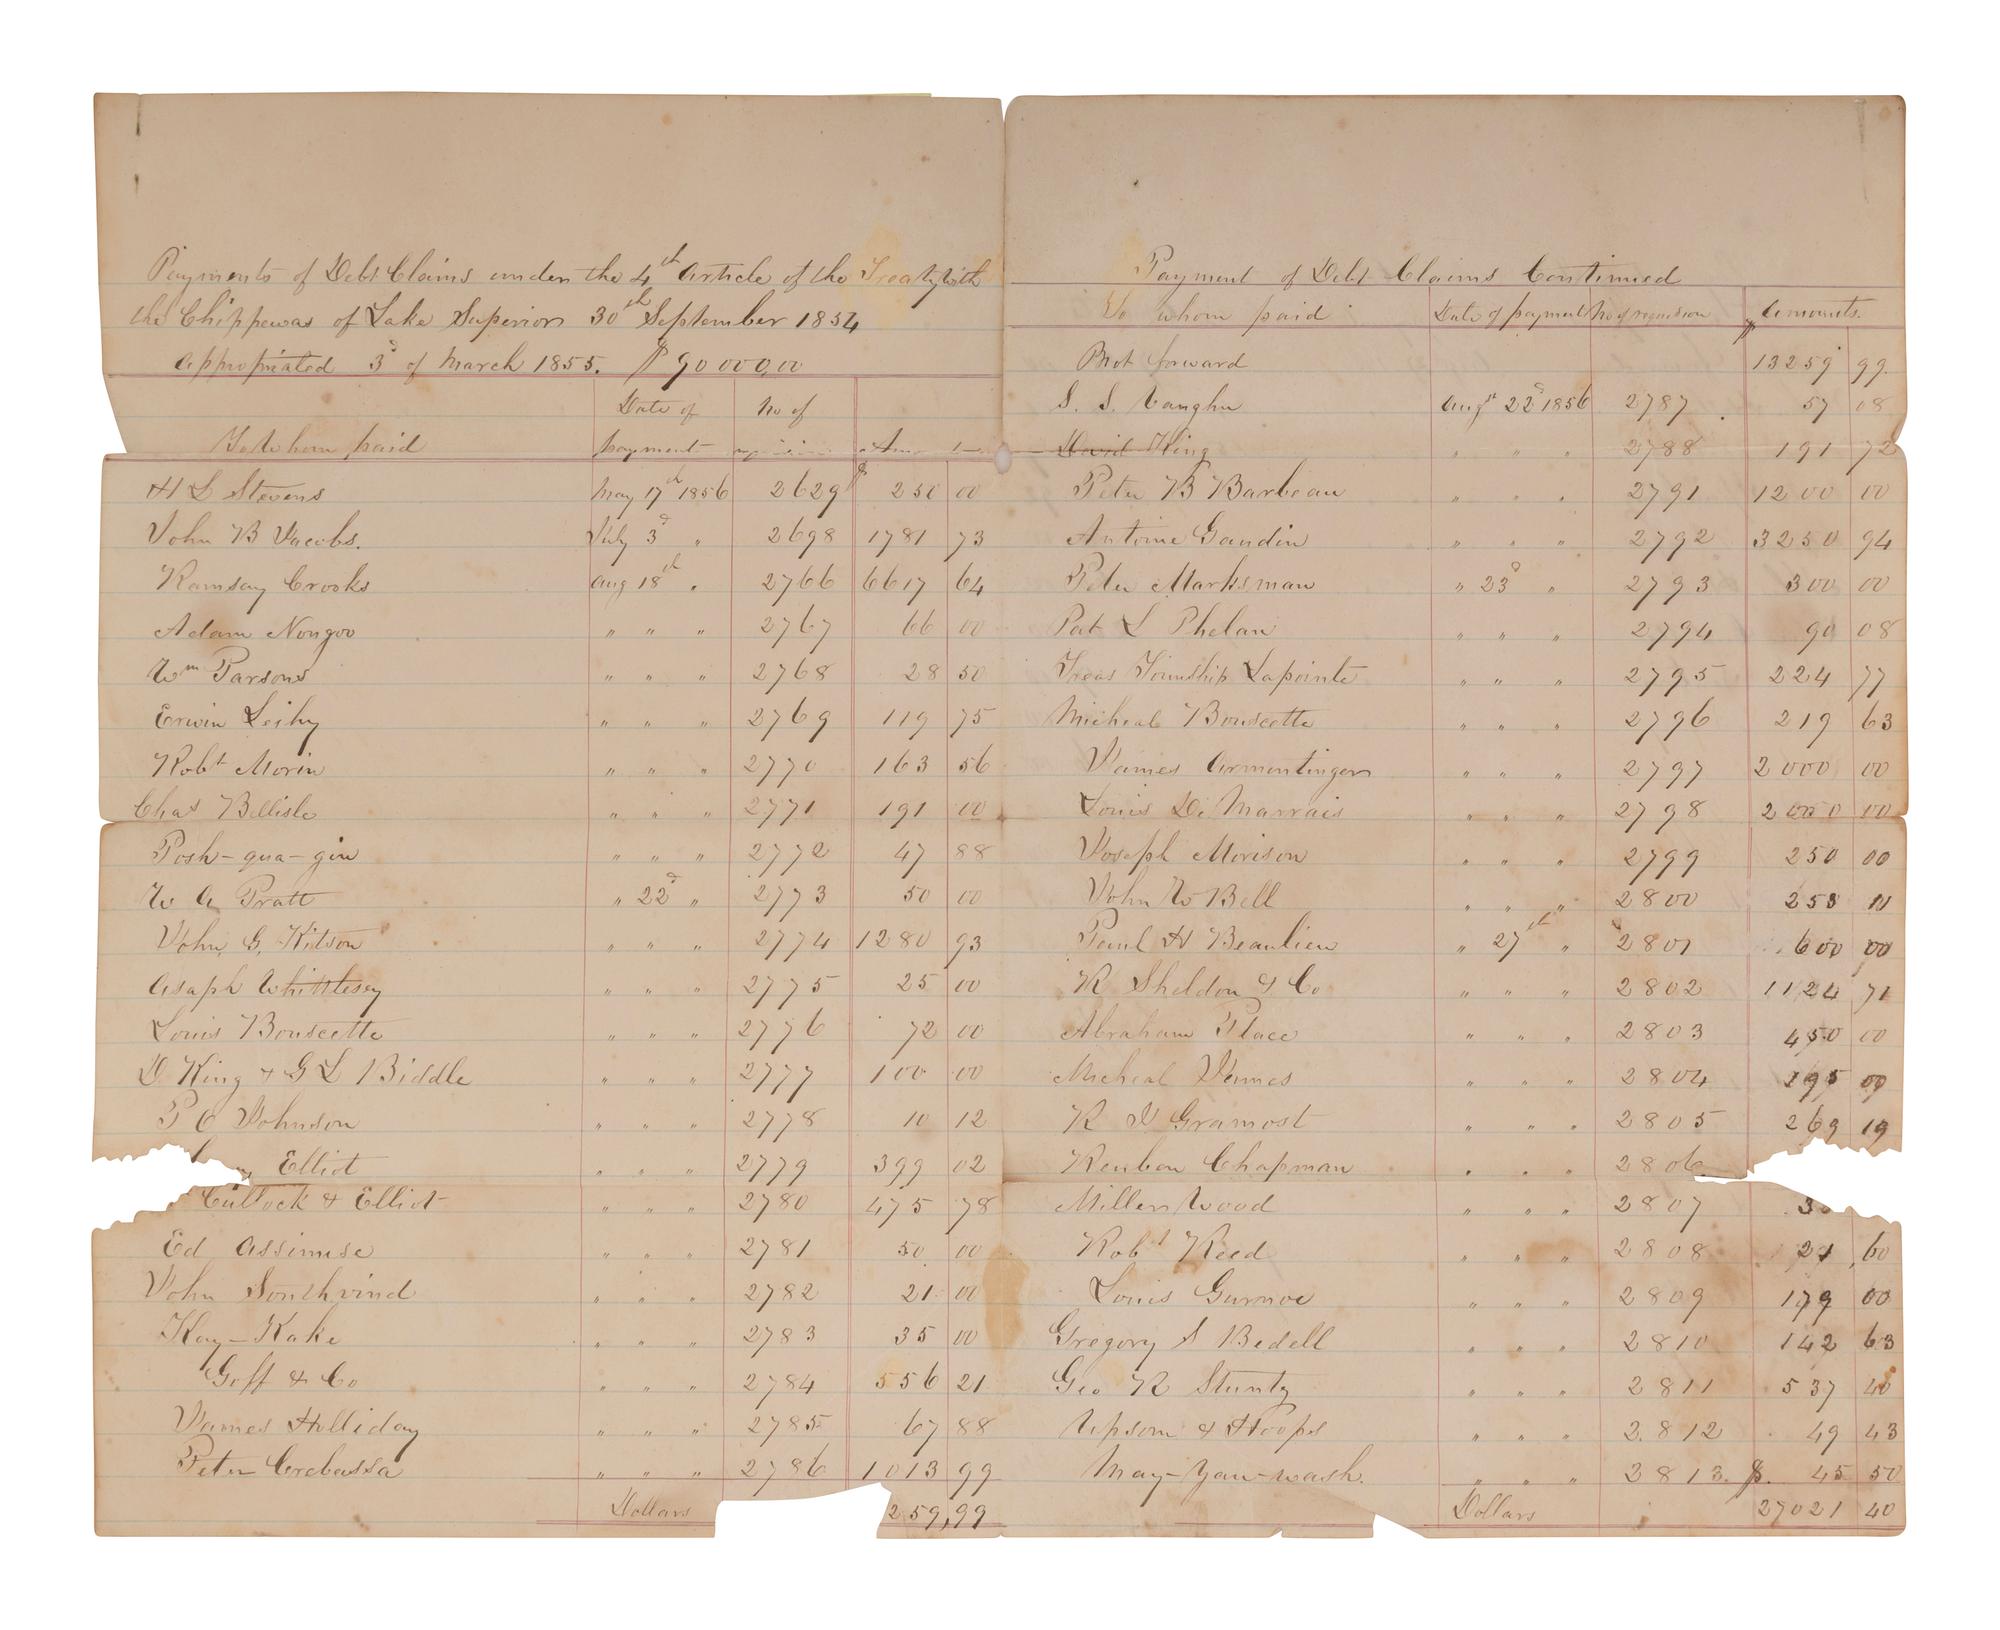 Payments of Debt Claims under the 4th Article of the Treaty with
the Chippewas of Lake Superior 30th September 1854
Appropriated 3d of March 1855. $90000,00
Date of No of
To Whom paid payment
H L Stevens May 17th 1856 2629 $ 250 00
John B Jacobs. July 3d " 2698 1781 73
Ramsay Crooks Aug 18th " 2766 6617 64
Adam Nongoo " " " 2767 66 00
Wm Parsons " " " 2768 28 50
Erwin Leihy " " " 2769 119 75
Robt Morin " " " 2770 163 56
Chas Bellisle " " " 2771 191 00
Posh-qua-gin " " " 2772 47 88
W A Pratt " 22d " 2773 50 00
John G. Kitson " " " 2774 1280 93
Asaph Whittlesey " " " 2775 25 00
Louis Bouscette " " " 2776 72 00
D King & G L Biddle " " " 2777 100 00
P O Johnson " " " 2778 10 12
Elliot " " " 2779 399 02
Cullock & Elliot " " " 2780 475 78
Ed Assinise " " " 2781 50 00
John Southvind " " " 2782 21 00
Kay-Kake " " " 2783 35 00
Goff & Co " " " 2784 556 21
James Holliday " " " 2785 67 88
Peter Crebassa " " " 2786 1013 99
Dollars 259,99
Payment of Debt Claims Continued
To whom paid Date of payment No of requisition Amounts.
Brot forward $ 13259 99
S. S. Vaughn Augst 22d 1856 2787 57 08
David King " " " 2788 191 72
Peter B Barbeau " " " 2791 1200 00
Antoine Gaudin " " " 2792 3250 94
Peter Marksman " 23d " 2793 300 00
Pat L Phelan " " " 2794 90 08
Treas Township Lapointe " " " 2795 224 77
Micheal Bouscette " " " 2796 219 63
James Armentinger " " " 2797 2000 00
Louis De Marrais " " " 2798 00
Joseph Morison " " " 2799 250 00
John W Bell " " " 2800
Paul H Beaulieu " 27th " 2801 600 00
R Sheldon & Co " " " 2802 1124 71
Abraham Place " " " 2803 450 00
Micheal James " " " 2804 195 00
R D Gramost " " " 2805 269 19
Reuben Chapman " " " 2806
Miller Wood " " " 2807
Robt Reed " " " 2808 21 60
Louis Gurnoe " " " 2809 179 00
Gregory S Bedell " " " 2810 142 63
Geo R Stuntz " " " 2811 537 40
Upsom & Hoops " " " 2812 49 43
May-Yaw-wash. " " " 2813. $. 45 50
Dollars 27021 40